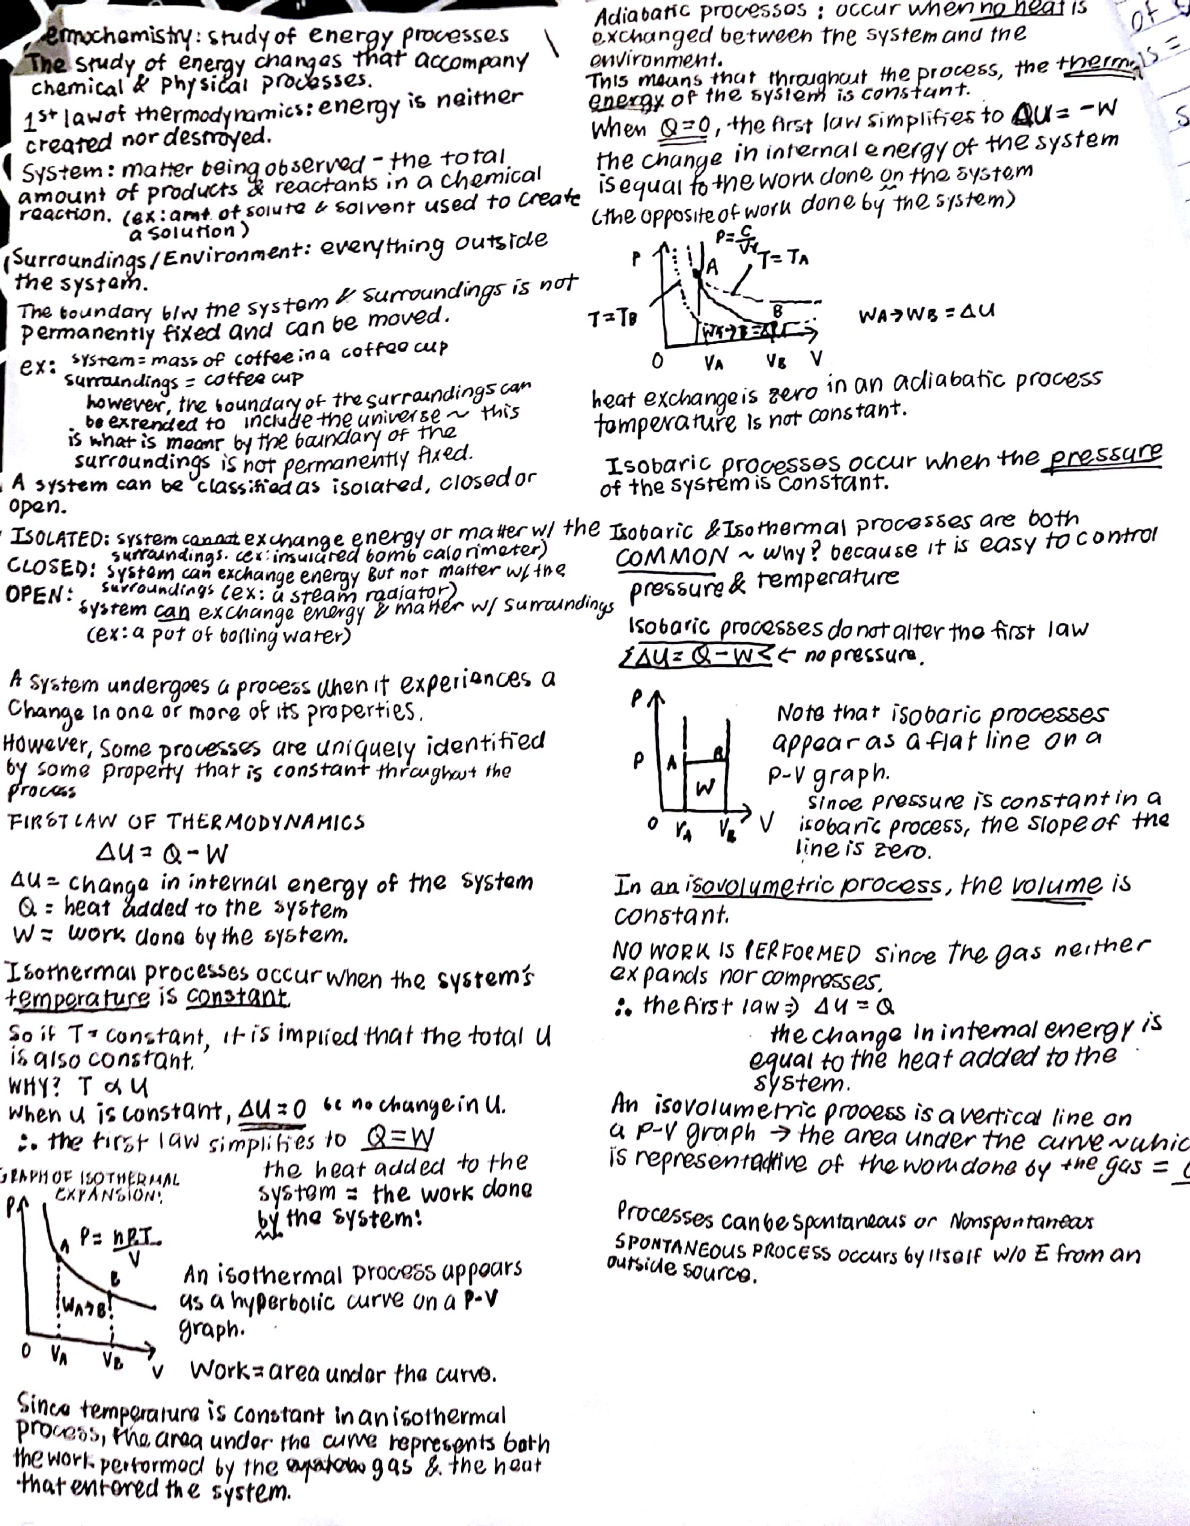 emochemistry: study of energy processes
The study of energy changes that accompany
chemical & physical processes.
1st law of thermodynamics: energy is neither
created nor destroyed.
System: matter being observed - the total
amount of products & reactants in a chemical
reaction. (ex: amt. of solute & solvent used to create
a solution)
Surroundings/Environment: everything outside
the system.
The boundary b/w the system & surroundings is not
permanently fixed and can be moved.
ex: system = mass of coffee in a coffee cup
surroundings = coffee cup
however, the boundary of the surroundings can
be extended to include the universe ~ this
is what is meant by the boundary of the
surroundings is not permanently fixed.
A system can be classified as isolated, closed or
open.
ISOLATED: system cannot exchange energy or matter w/ the
surroundings. (ex: insulated bomb calorimeter)
CLOSED: system can exchange energy But not matter w/ the
surroundings (ex: a steam radiator)
OPEN: system can exchange energy & matter w/ surroundings
(ex: a pot of boiling water)
A system undergoes a process when it experiences a
change in one or more of its properties.
However, some processes are uniquely identified
by some property that is constant throughout the
process
FIRST LAW OF THERMODYNAMICS
ΔU = Q - W
ΔU = change in internal energy of the system
Q = heat added to the system
W = work done by the system.
Isothermal processes occur when the system's
temperature is constant
So if T = constant, it is implied that the total U
is also constant.
WHY? T α U
when U is constant, ΔU = 0 bc no change in U.
∴ the first law simplifies to Q = W
the heat added to the
system = the work done
by the system!
GRAPH OF ISOTHERMAL
EXPANSION:
P
P = nRT
V
A
B
WA→B
0 VA VB V
An isothermal process appears
as a hyperbolic curve on a P-V
graph.
Work = area under the curve.
Since temperature is constant in an isothermal
process, the area under the curve represents both
the work performed by the gas & the heat
that entered the system.
Adiabatic processes: occur when no heat is
exchanged between the system and the
environment.
This means that throughout the process, the thermal
energy of the system is constant.
When Q=0, the first law simplifies to ΔU = -W
the change in internal energy of the system
is equal to the work done on the system
(the opposite of work done by the system)
P
A
T = TA
T = TB
B
WA→WB = ΔU
0 VA VB V
heat exchange is zero in an adiabatic process
temperature is not constant.
Isobaric processes occur when the pressure
of the system is constant.
Isobaric & Isothermal processes are both
COMMON ~ why? because it is easy to control
pressure & temperature
Isobaric processes do not alter the first law
ΔU = Q - W ← no pressure.
P
P A B
W
0 VA VB V
Note that isobaric processes
appear as a flat line on a
P-V graph.
since pressure is constant in a
isobaric process, the slope of the
line is zero.
In an isovolumetric process, the volume is
constant.
NO WORK IS PERFORMED since the gas neither
expands nor compresses.
∴ the first law ⇒ ΔU = Q
the change in internal energy is
equal to the heat added to the
system.
An isovolumetric process is a vertical line on
a P-V graph → the area under the curve ~ whic
is representative of the work done by the gas =
Processes can be spontaneous or Nonspontaneous
SPONTANEOUS PROCESS occurs by itself w/o E from an
outside source.